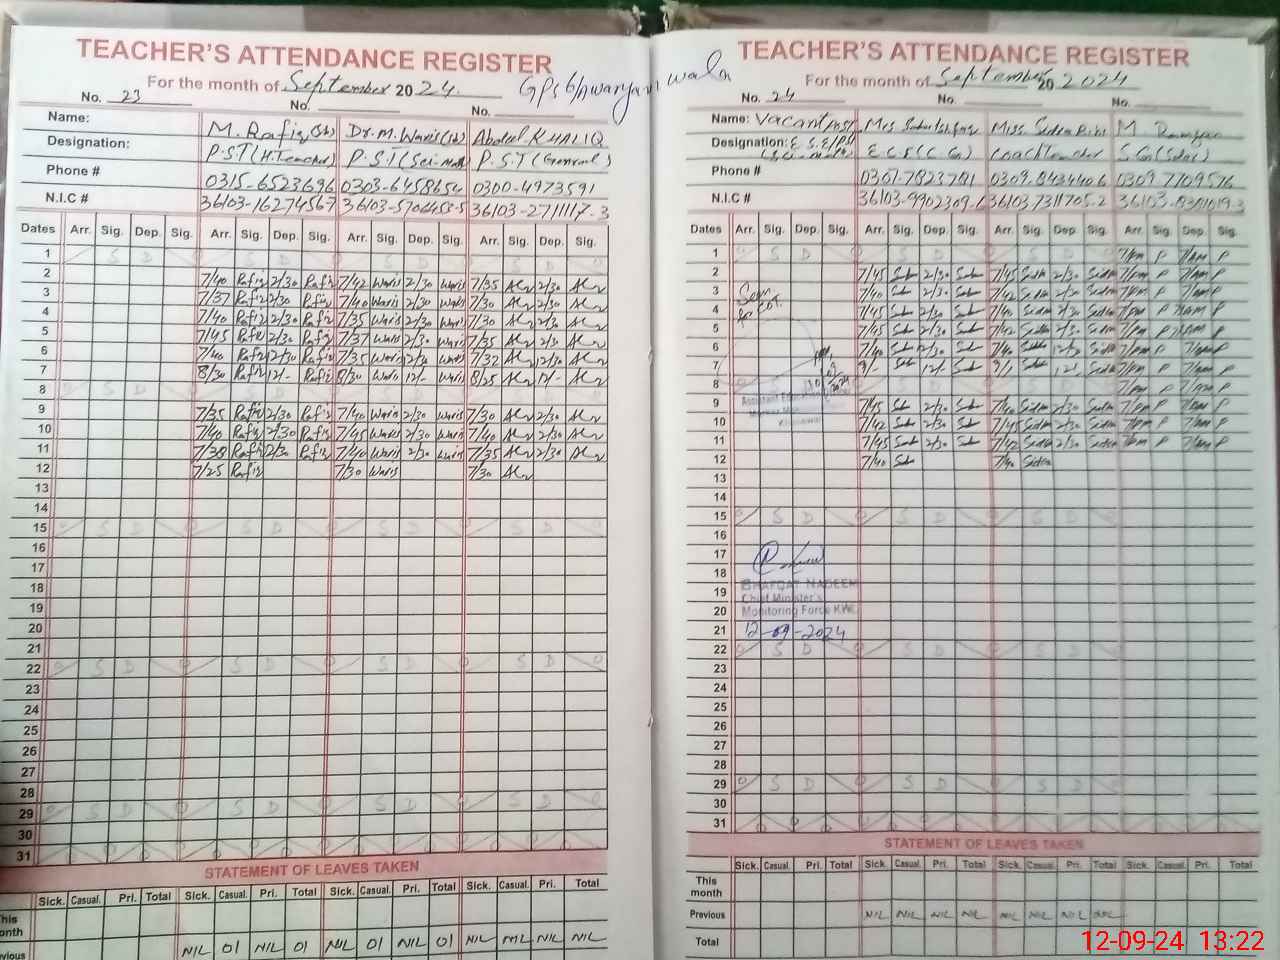 TEACHER'S ATTENDANCE REGISTER
For the month of September 2024.
No. 23 No. No.
Name: M. Rafiq (Sb) Dr. M. Waris (Sb) Abdul KHALIQ
Designation: P.S.T (H.Teacher) P.S.T (Sci-Math) P.S.T (General)
Phone # 0315-6523696 0303-6458654 0300-4973591
N.I.C # 36103-16274567 36103-5706453-5 36103-2711117-3
Dates Arr. Sig. Dep. Sig. Arr. Sig. Dep. Sig. Arr. Sig. Dep. Sig. Arr. Sig. Dep. Sig.
1 S D
2 7/40 Rafiq 2/30 Rafiq 7/42 Waris 2/30 Waris 7/35 2/30
3 7/37 Rafiq 2/30 Rafiq 7/40 Waris 2/30 Waris 7/30 2/30
4 7/40 Rafiq 2/30 Rafiq 7/35 Waris 2/30 Waris 7/30 2/30
5 7/45 Rafiq 2/30 Rafiq 7/37 Waris 2/30 Waris 7/35 2/30
6 7/40 Rafiq 12/30 Rafiq 7/35 Waris 12/30 Waris 7/32 12/30
7 8/30 Rafiq 12/- Rafiq 8/30 Waris 12/- Waris 8/25 12/-
8 S D
9 7/35 Rafiq 2/30 Rafiq 7/40 Waris 2/30 Waris 7/30 2/30
10 7/40 Rafiq 2/30 Rafiq 7/45 Waris 2/30 Waris 7/40 2/30
11 7/38 Rafiq 2/30 Rafiq 7/40 Waris 2/30 Waris 7/35 2/30
12 7/25 Rafiq 7/30 Waris 7/30
13
14
15 S D S D S D S D
16
17
18
19
20
21
22 S D S D S D S D
23
24
25
26
27
28
29 S D S D S D S D
30
31
STATEMENT OF LEAVES TAKEN
Sick. Casual. Pri. Total Sick. Casual. Pri. Total Sick. Casual. Pri. Total Sick. Casual. Pri. Total
This month
NIL 01 NIL 01 NIL 01 NIL 01 NIL NIL NIL NIL
TEACHER'S ATTENDANCE REGISTER
For the month of September 2024
No. 24 No. No.
Name: Vacant Post Mrs Miss. Sidra Bibi M.
Designation: E.S.E E.C.E Coach teacher
Phone # 0301-7823781 0309-8434406 0309-7709576
N.I.C # 36103-9902309-6 36103,7311705-2
Dates Arr. Sig. Dep. Sig. Arr. Sig. Dep. Sig. Arr. Sig. Dep. Sig. Arr. Sig. Dep. Sig.
1 S D 7/PM P 7/AM P
2 7/45 2/30 7/45 Sidra 2/30 Sidra 7/PM P 7/AM P
3 7/40 2/30 7/42 Sidra 2/30 Sidra 7/PM P 7/AM P
4 7/45 2/30 7/40 Sidra 2/30 Sidra 7/PM P 7/AM P
5 7/45 2/30 7/42 Sidra 2/30 Sidra 7/PM P 7/AM P
6 7/40 12/30 7/40 Sidra 12/30 Sidra 7/PM P 7/AM P
7 12/- Sidra 7/PM P 7/AM P
8 7/PM P 7/AM P
9 7/45 2/30 7/40 Sidra 2/30 Sidra 7/PM P 7/AM P
10 7/42 2/30 7/45 Sidra 2/30 Sidra 7/PM P 7/AM P
11 7/45 2/30 7/42 Sidra 2/30 Sidra 7/PM P 7/AM P
12 7/40 7/40 Sidra
Assistant Education
13
14
15 S D S D S D
16
17
18
19 SHAFQAT NADEEM
Chief Minister's
20 Monitoring Force KWL
21 12-09-2024
22 S D S D S D
23
24
25
26
27
28
29 S D S D S D
30
31
STATEMENT OF LEAVES TAKEN
Sick. Casual. Pri. Total Sick. Casual. Pri. Total Sick. Casual. Pri. Total Sick. Casual. Pri. Total
This month
Previous NIL NIL NIL NIL NIL NIL NIL NIL
Total
12-09-24 13:22